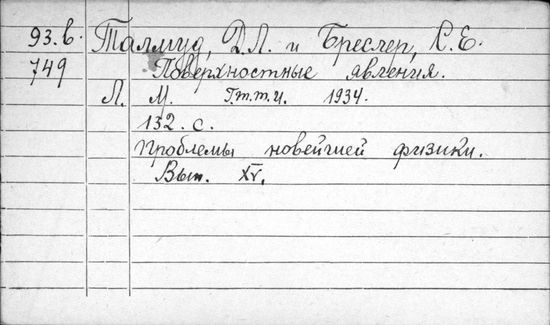 93.в. Талмуд, Д.Л. и Бреслер, С.Е.
749 Поверхностные явления.
Л. М. Г.т.т.и. 1934.
132. с.
Проблемы новейшей физики.
Вып. XV.